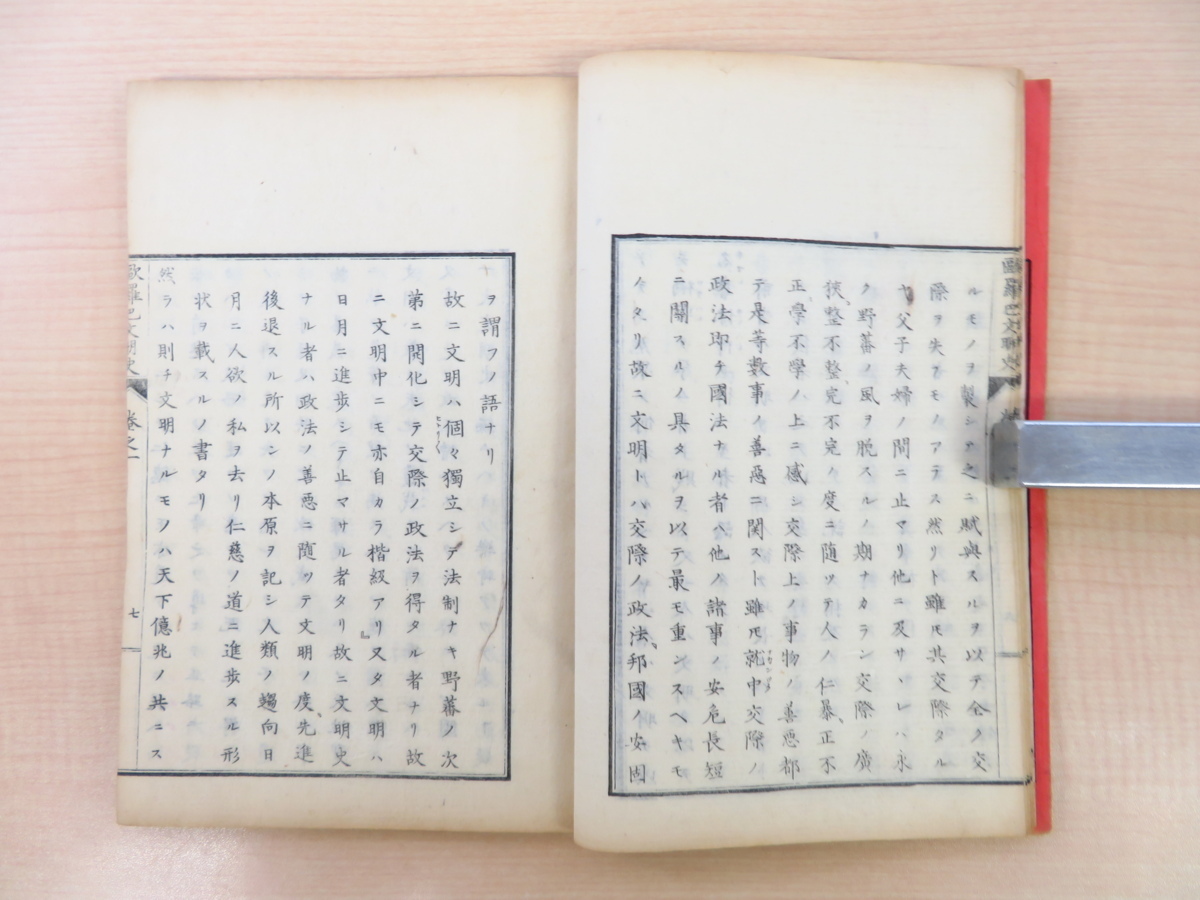 ルモノヲ製シテ之ニ賦與スルヲ以テ全ク交
際ヲ失フモノアラス然リト雖𪜈其交際タル
ヤ父子夫婦ノ間ニ止マリ他ニ及サヽレハ永
ク野蕃ノ風ヲ脱スルノ期ナカラン交際ノ廣
狹、整不整、完不完ノ度ニ随ツテ人ノ仁暴、正不
正、學不學ノ上ニ感シ交際上ノ事物ノ善惡都
テ是等數事ノ善惡ニ関スト雖𪜈就中交際ノ
政法即チ國法ナル者ハ他ノ諸事ノ安危長短
ニ關スルノ具タルヲ以テ最モ重ンスヘキモ
ノタリ故ニ文明トハ交際ノ政法、邦國ノ安固
ヲ謂フノ語ナリ
故ニ文明ハ個々獨立シテ法制ナキ野蕃ノ次
第ニ開化シテ交際ノ政法ヲ得タル者ナリ故
ニ文明中ニモ亦自カラ楷級アリ』又タ文明ハ
日月ニ進歩シテ止マサル者タリ故ニ文明史
ナル者ハ政法ノ善悪ニ随ツテ文明ノ度、先進
後退スル所以ンノ本原ヲ記シ人類ノ趨向日
月ニ人欲ノ私ヲ去リ仁慈ノ道ニ進歩スル形
状ヲ載スルノ書タリ
然ラハ則チ文明ナルモノハ天下億兆ノ共ニス
歐羅巴文明史
卷之一
七